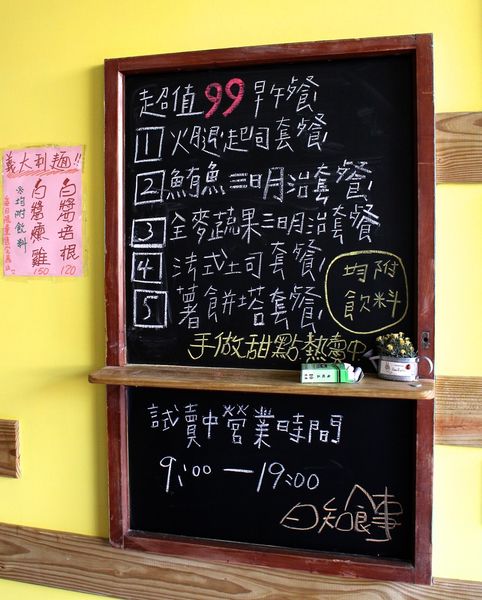 超值99早午餐
1 火腿起司套餐
2 鮪魚三明治套餐
3 全麥蔬果三明治套餐
4 法式土司套餐
5 薯餅塔套餐
均附
飲料
手做甜點熱賣中
試賣中營業時間
9:00—19:00
日知食事
義大利麵!!
白醬培根
120
白醬燻雞
150
※均附飲料